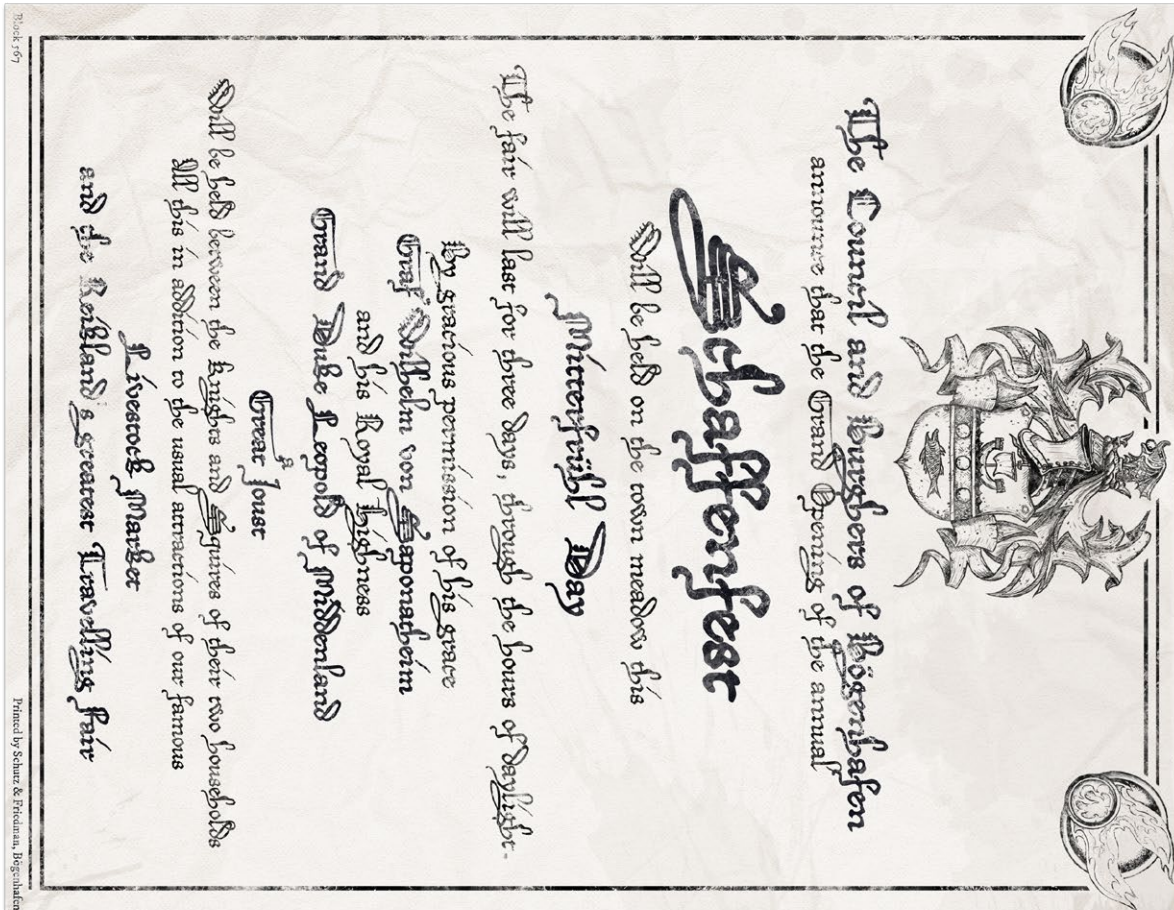 The Council and Burghers of Bögenhafen
announce that the Grand Opening of the annual
Schaffenfest
Will be held on the town meadow this
Mitterfrühl Day
The fair will last for three days, through the hours of daylight.
By gracious permission of his grace
Graf Wilhelm von Saponatheim
and his Royal Highness
Grand Duke Leopold of Middenland
a
Great Joust
Will be held between the Knights and Squires of their two households
All this in addition to the usual attractions of our famous
Livestock Market
and the Reikland's greatest Travelling Fair
Block 567
Printed by Schutz & Friedman, Bögenhafen